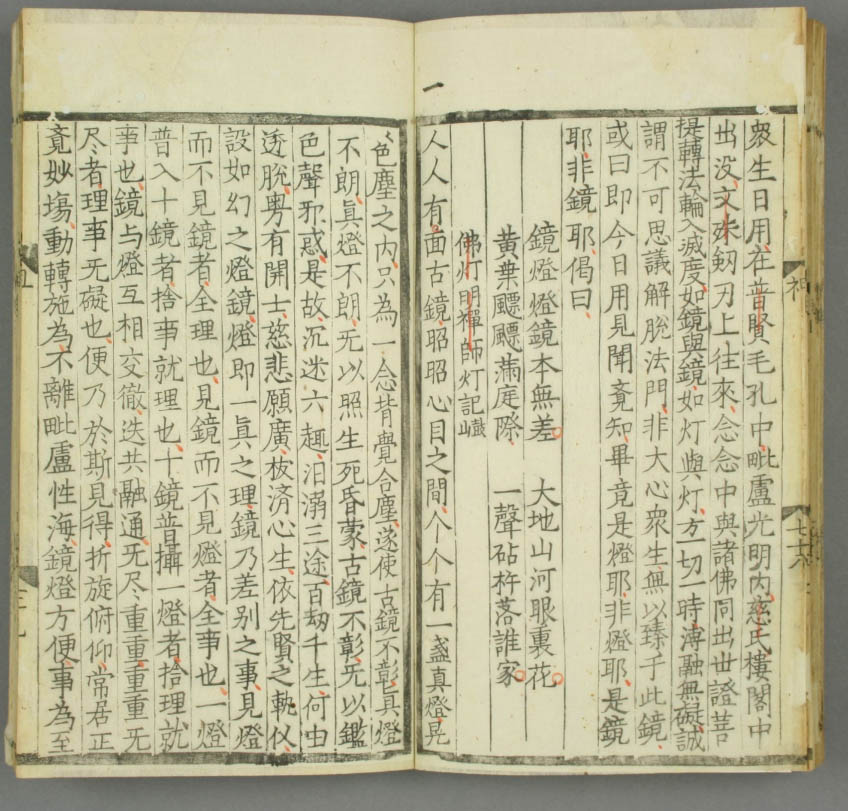 衆生日用在普賢毛孔中毗盧光明内慈氏樓閣中
出没文殊劒刃上往來念念中與諸佛同出世證菩
提轉法輪入滅度如鏡與鏡如灯與灯方一切一時溥融無礙誠
謂不可思議解脱法門非大心衆生無以臻于此鏡
或曰即今日用見聞竟知畢竟是燈耶非燈耶是鏡
耶非鏡耶偈曰
鏡燈燈鏡本無差　大地山河眼裏花
黄葉飃飃滿庭際　一聲砧杵落誰家
佛灯明禪師灯記
人人有面古鏡昭昭心目之間个个有一盞真燈晃
色塵之内只為一念背覺合塵遂使古鏡不彰真燈
不朗眞燈不朗无以照生死昏蒙古鏡不彰无以鑑
色聲邪惑是故沉迷六趣汨溺三途百劫千生何由
透脱粤有開士慈悲願廣拔済心生依先賢之軌仪
設如幻之燈鏡燈即一眞之理鏡乃差别之事見燈
而不見鏡者全理也見鏡而不見燈者全事也一燈
普入十鏡者捨事就理也十鏡普攝一燈者捨理就
事也鏡与燈互相交徹迭共融通无尽重重重重无
尽者理事无礙也便乃於斯見得折旋俯仰常居正
竟妙塲動轉施為不離毗盧性海鏡燈方便事為至